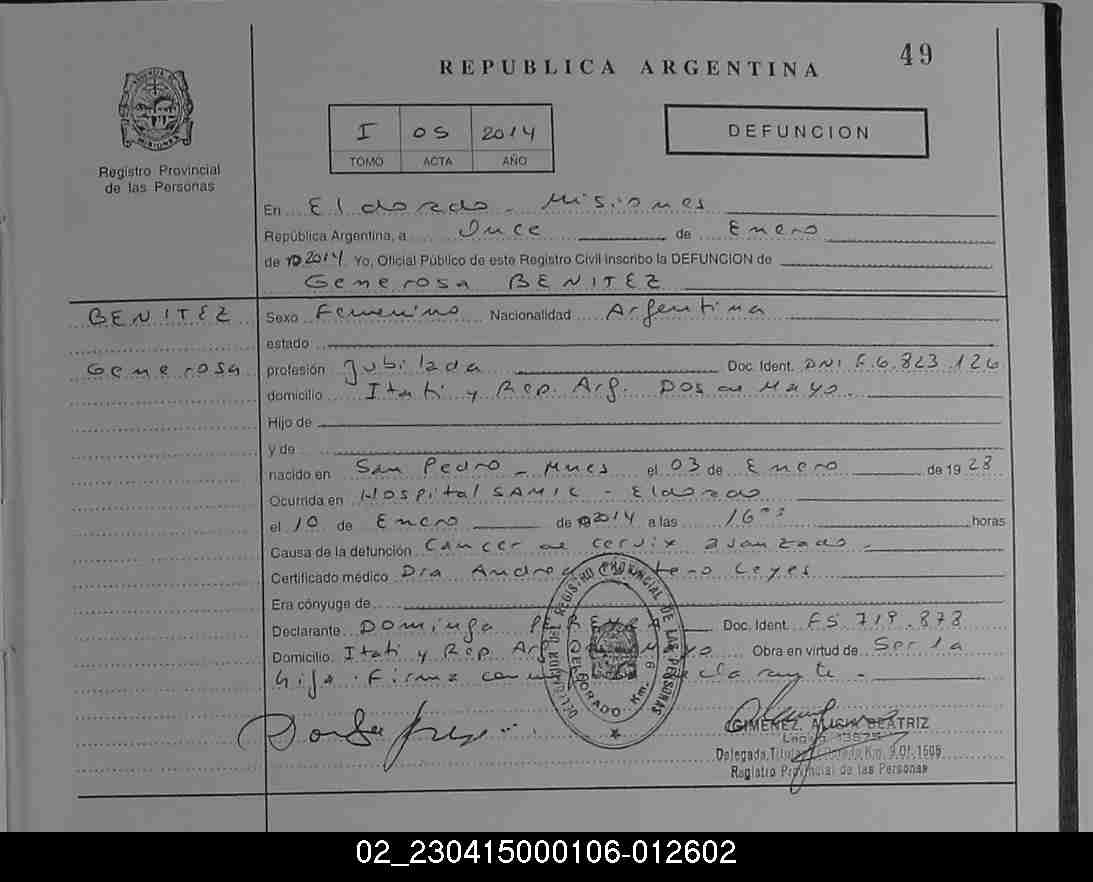 49
REPUBLICA ARGENTINA
I 05 2014
TOMO ACTA AÑO
DEFUNCION
Registro Provincial
de las Personas
En Eldorado - Misiones
República Argentina, a Once de Enero
de 2014 Yo, Oficial Público de este Registro Civil inscribo la DEFUNCION de
Generosa BENITEZ
BENITEZ
Generosa
Sexo Femenino Nacionalidad Argentina
estado
profesión Jubilada Doc. Ident. DNI F.6.823.126
domicilio Itati y Rep. Arg. Dos de Mayo.
Hijo de
y de
nacido en San Pedro - Mnes el 03 de Enero de 1928
Ocurrida en Hospital SAMIC - Eldorado
el 10 de Enero de 2014 a las 16 horas
Causa de la defunción Cancer de cervix avanzado.
Certificado médico Dra Andrea Leyes
Era cónyuge de
Declarante Dominga Doc. Ident. F5.719.878
Domicilio Itati y Rep. Arg Obra en virtud de Ser la
hija. Firma
DELEGACION DEL REGISTRO PROVINCIAL DE LAS PERSONAS
ELDORADO Km. 9
GIMENEZ ALICIA BEATRIZ
Delegada Titular Eldorado Km. 9 Of. 1606
Registro Provincial de las Personas
02_230415000106-012602